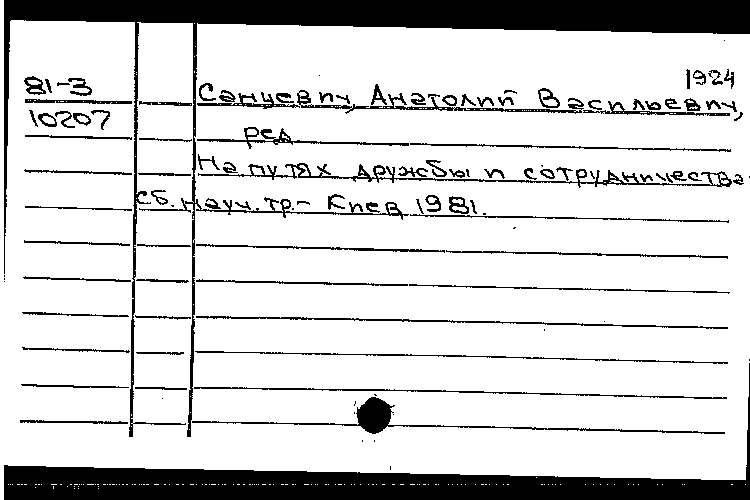 1924
81-3 Санцевич, Анатолий Васильевич,
10207 ред.
На путях дружбы и сотрудничества.
Сб. науч. тр. - Киев, 1981.